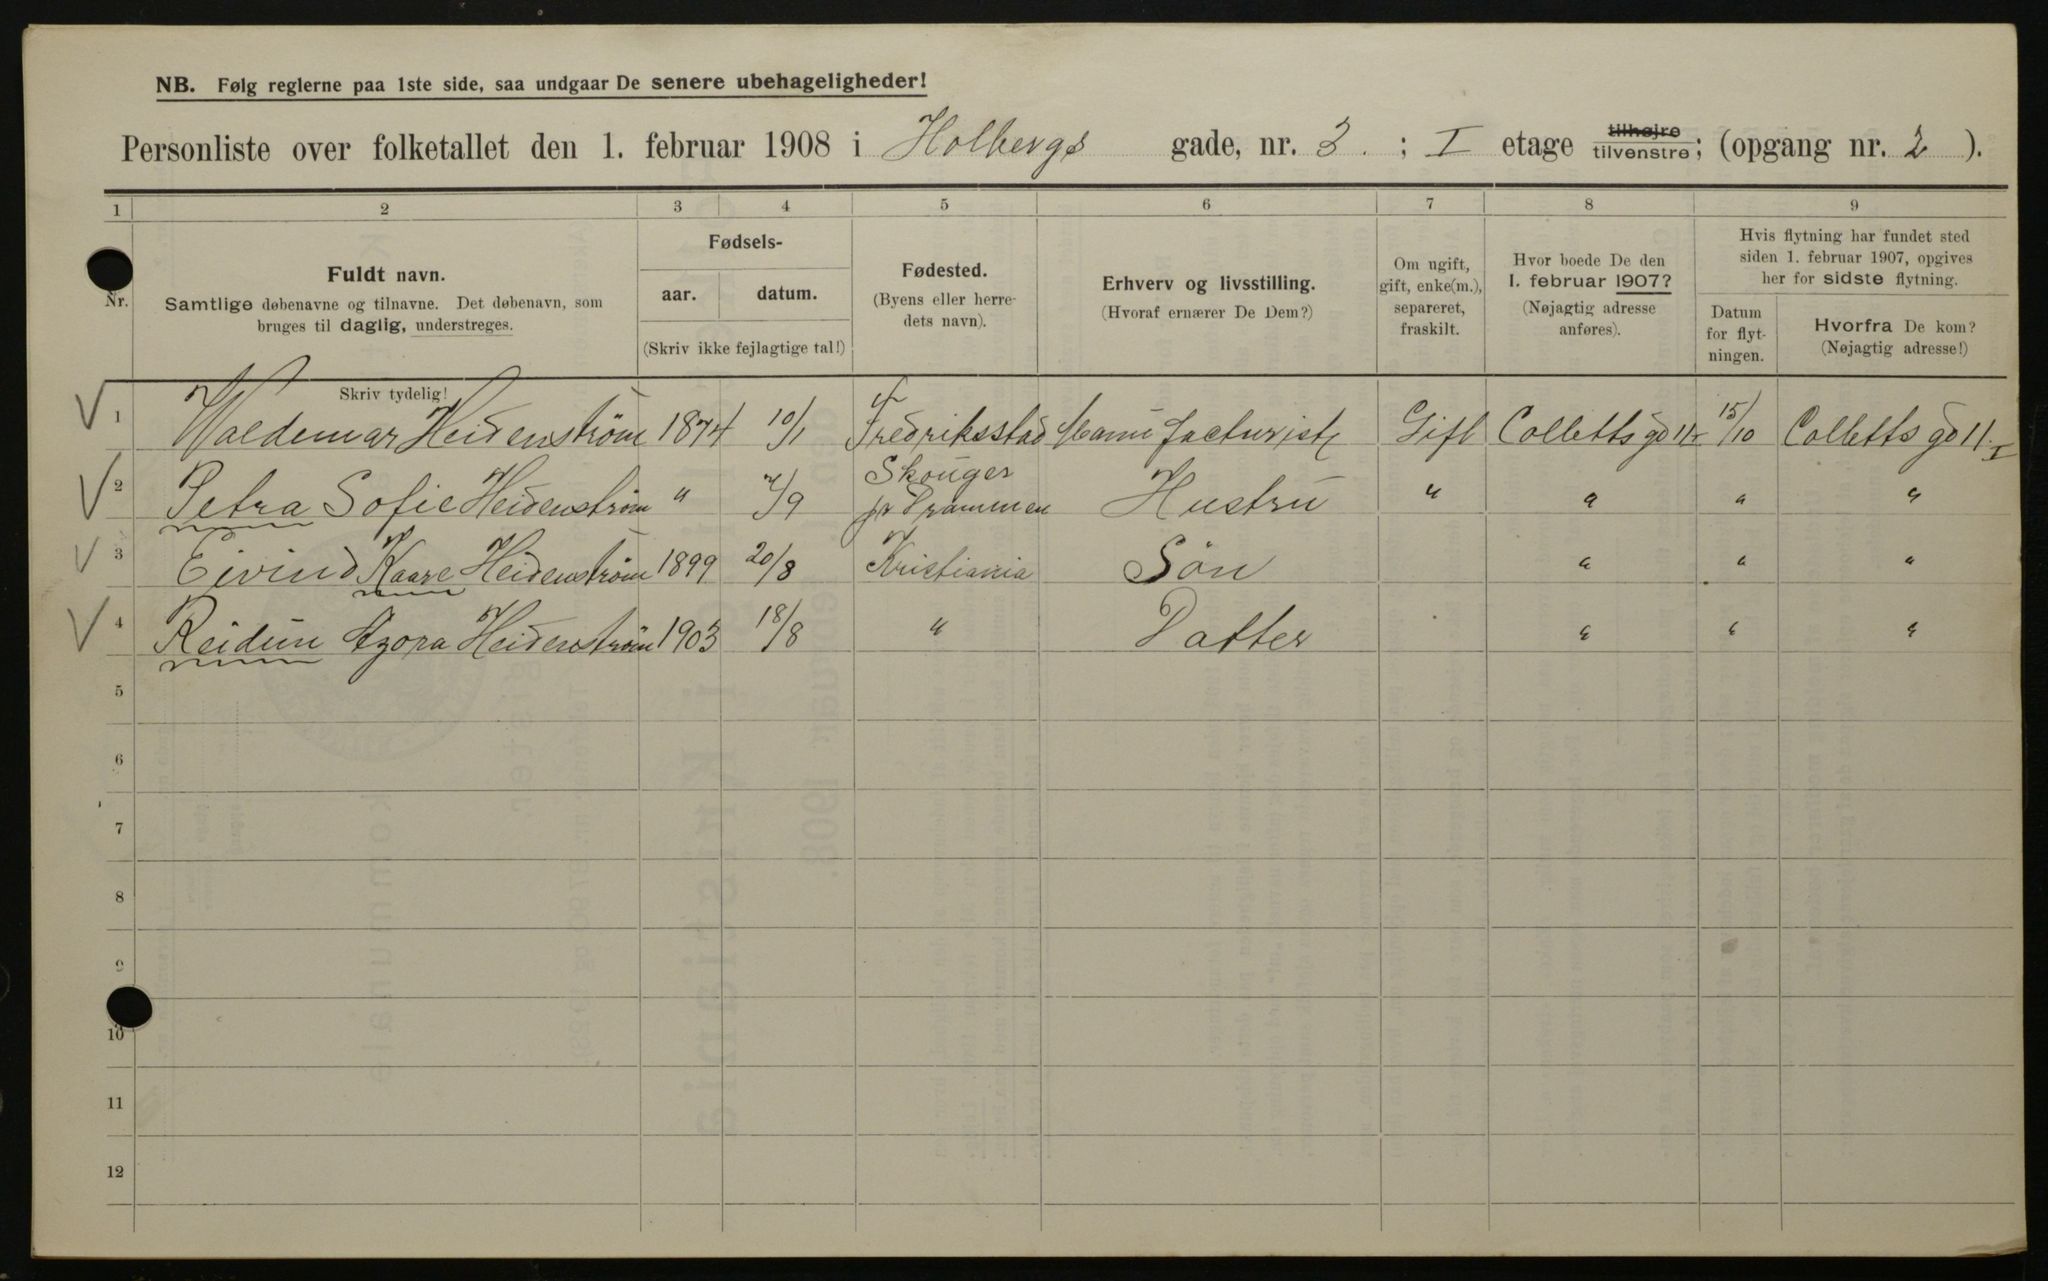 NB. Følg reglerne paa 1ste side, saa undgaar De senere ubehageligheder!
Personliste over folketallet den 1. februar 1908 i Holbergs gade, nr. 3. ; I etage tilhøjre tilvenstre; (opgang nr. 2 ).
1 2 3 4 5 6 7 8 9
Nr.
Fuldt navn.
Samtlige døbenavne og tilnavne. Det døbenavn, som
bruges til daglig, understreges.
Skriv tydelig!
Fødsels-
aar. datum.
(Skriv ikke fejlagtige tal!)
Fødested.
(Byens eller herre-
dets navn).
Erhverv og livsstilling.
(Hvoraf ernærer De Dem?)
Om ugift,
gift, enke(m.),
separeret,
fraskilt.
Hvor boede De den
1. februar 1907?
(Nøjagtig adresse
anføres).
Hvis flytning har fundet sted
siden 1. februar 1907, opgives
her for sidste flytning.
Datum
for flyt-
ningen.
Hvorfra De kom?
(Nøjagtig adresse!)
1 Waldemar Heidenstrøm 1874 10/1 Fredriksstad Manufacturist Gift Colletts gd 11 I 15/10 Colletts gd 11. I
2 Petra Sofie Heidenstrøm " 7/9 Skouger pr Drammen Hustru " " " "
3 Eivind Kaare Heidenstrøm 1899 20/8 Kristiania Søn " " "
4 Reidun Azora Heidenstrøm 1903 18/8 " Datter " " "
5
6
7
8
9
10
11
12